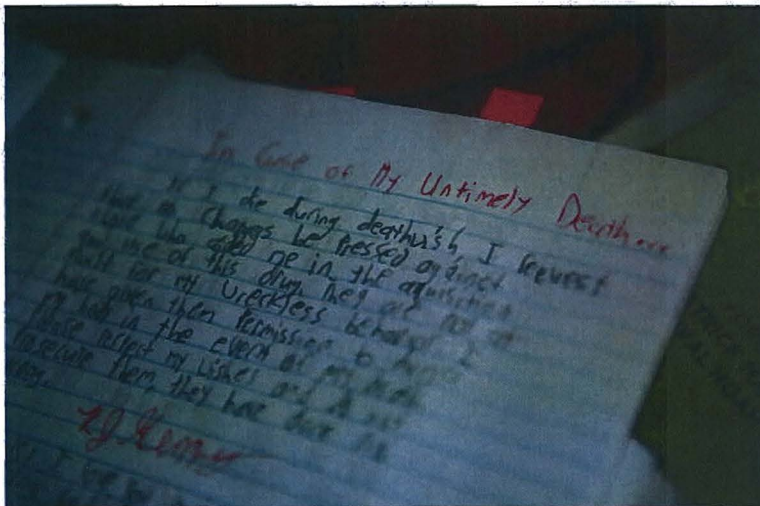 In Case of My Untimely Death...
If I die during deathwish, I request
that no charges be pressed against
those who aided me in the aquisition
and use of this drug. They are not at
fault for my wreckless behavior. I
have given them permission to
my body in the event of my death
Please respect my wishes and do not
prosecute them, they have done no
wrong.